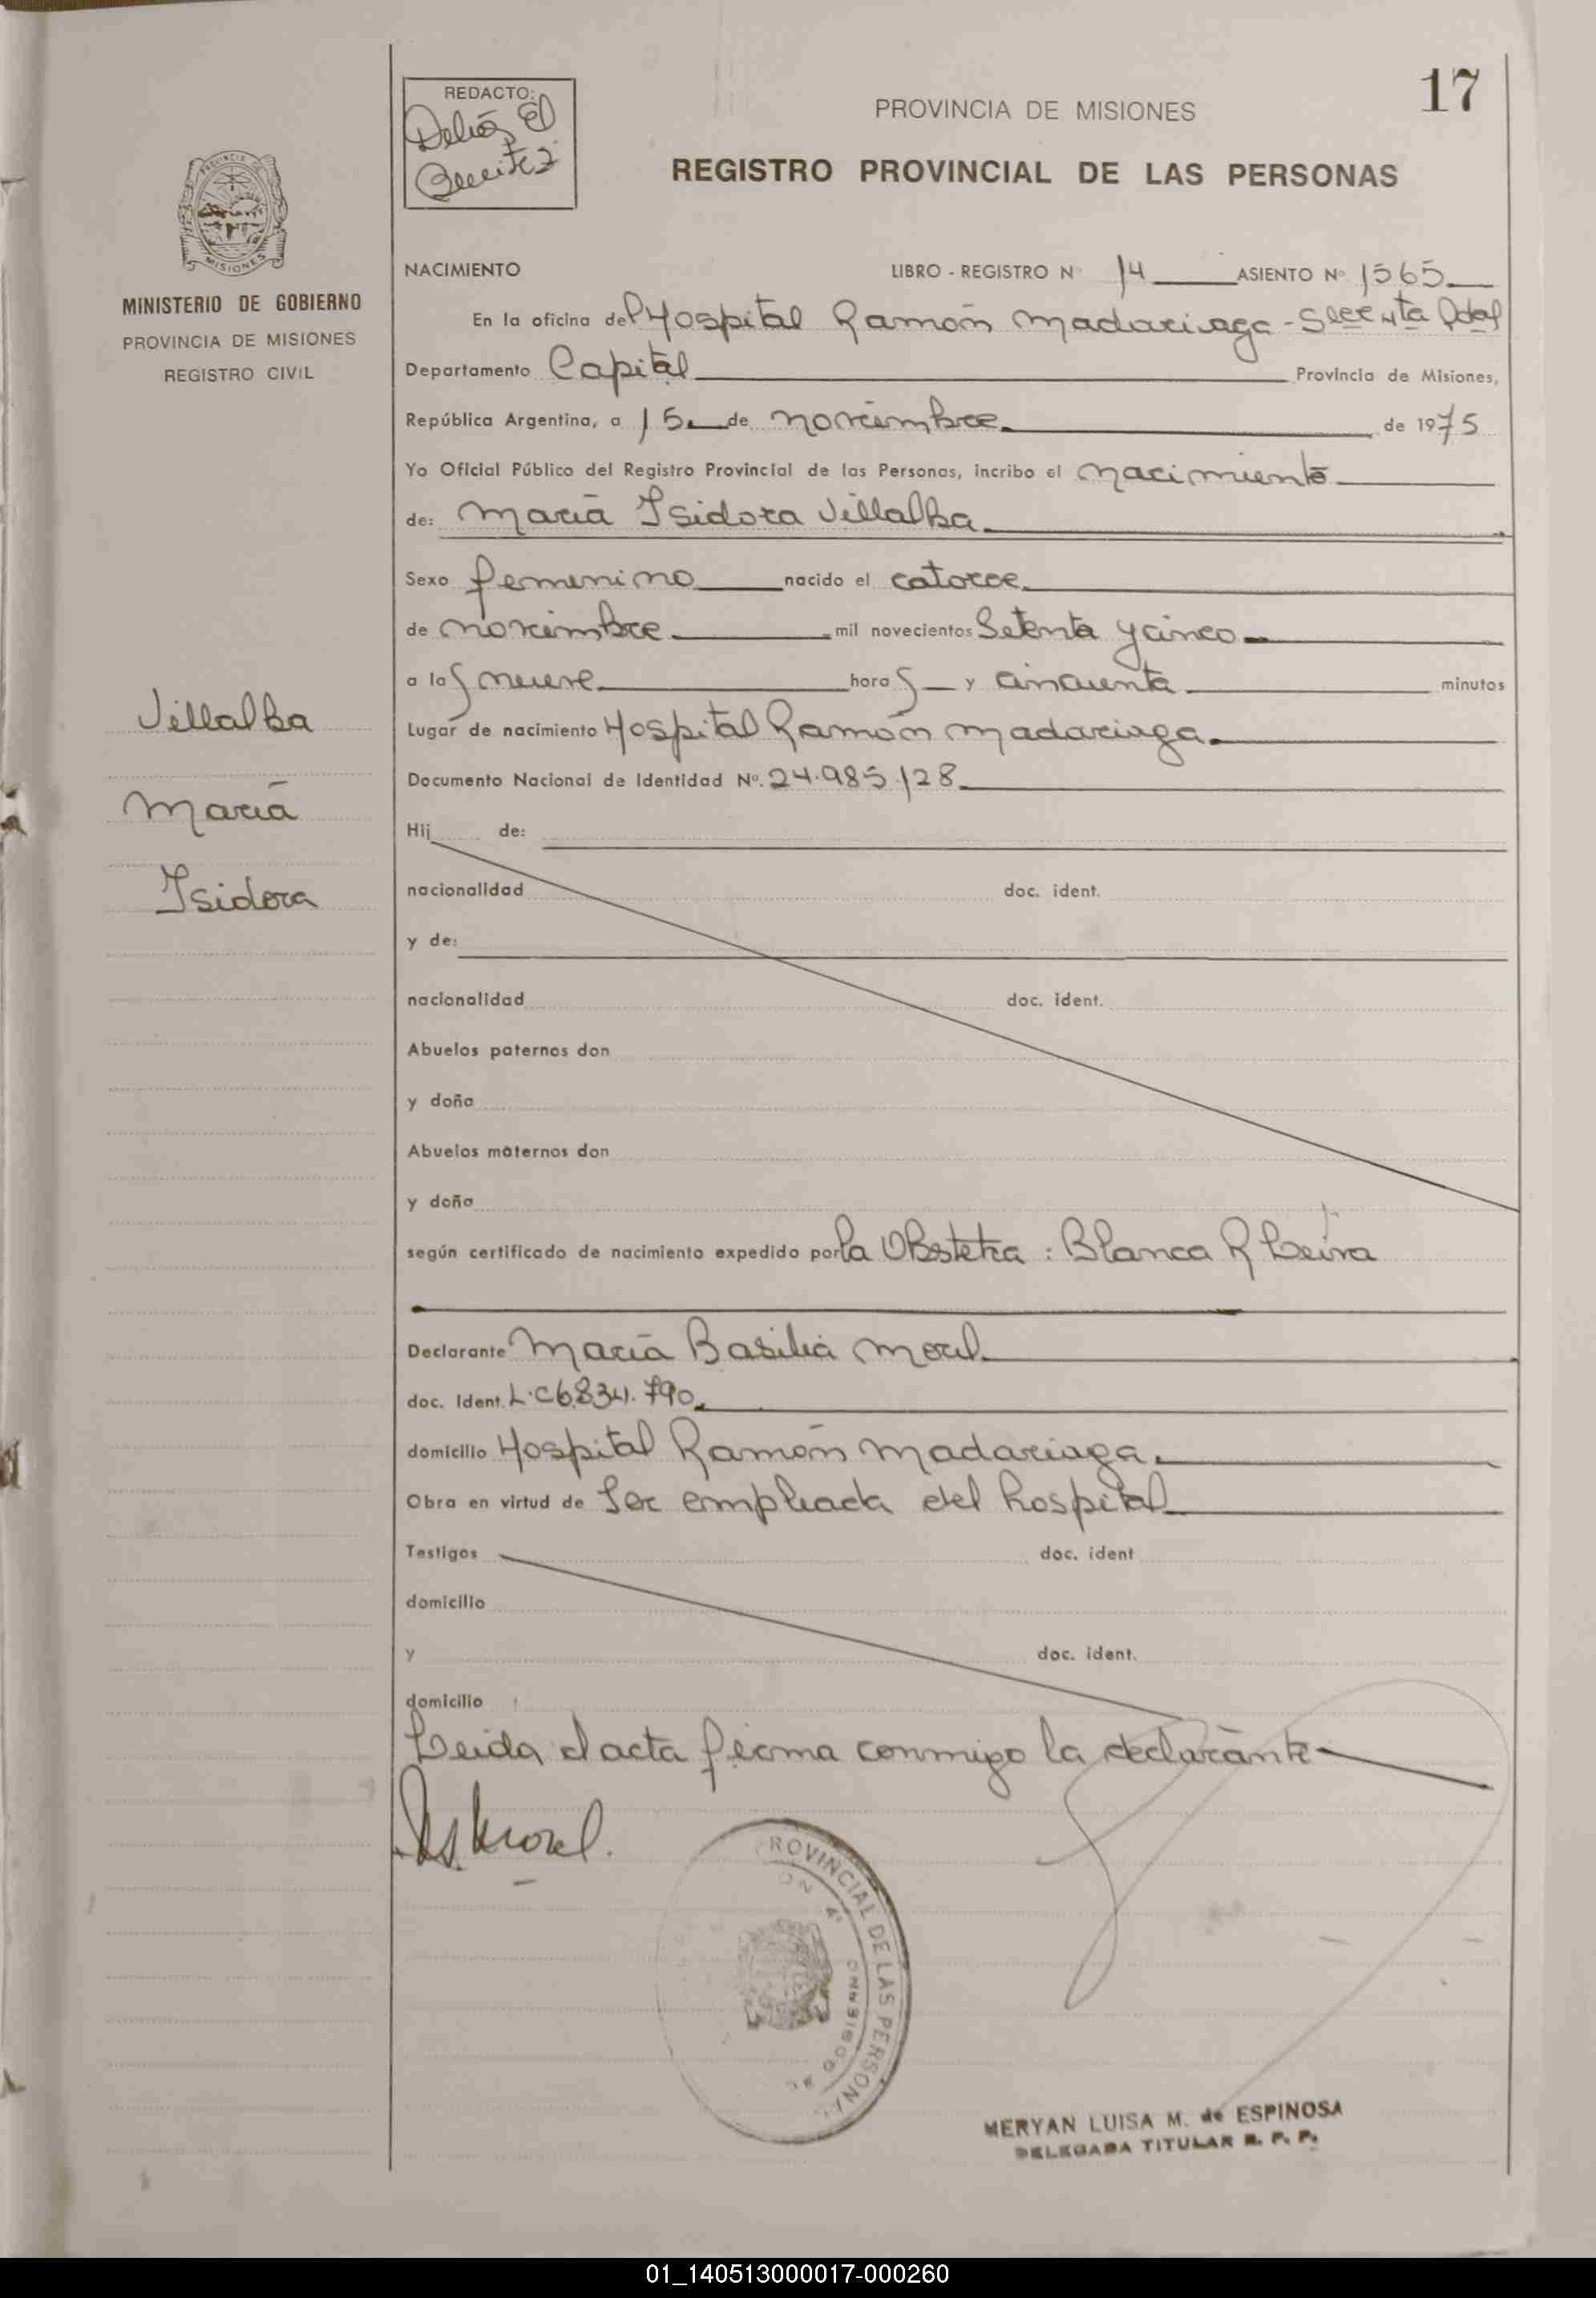 17
REDACTO:
Delia El
Benitez
PROVINCIA DE MISIONES
REGISTRO PROVINCIAL DE LAS PERSONAS
MINISTERIO DE GOBIERNO
PROVINCIA DE MISIONES
REGISTRO CIVIL
NACIMIENTO LIBRO - REGISTRO Nº 14 ASIENTO Nº 1565
En la oficina del Hospital Ramón Madariaga - Secc 4ta Pdas
Departamento Capital Provincia de Misiones,
República Argentina, a 15 de noviembre de 1975
Yo Oficial Público del Registro Provincial de las Personas, incribo el nacimiento
de: María Isidora Villalba
Sexo femenino nacido el catorce
de noviembre mil novecientos Setenta y cinco
a las nueve horas y cincuenta minutos
Lugar de nacimiento Hospital Ramón Madariaga
Documento Nacional de Identidad Nº. 24.985.128
Villalba
María
Isidora
Hij de:
nacionalidad doc. ident.
y de:
nacionalidad doc. ident.
Abuelos paternos don
y doña
Abuelos maternos don
y doña
según certificado de nacimiento expedido por la Obstetra: Blanca R Leiva
Declarante María Basilia Morel
doc. Ident. L.C 6.834.790
domicilio Hospital Ramón Madariaga
Obra en virtud de Ser empleada del hospital
Testigos doc. ident
domicilio
y doc. ident.
domicilio
Leida el acta firma conmigo la declarante
Morel.
PROVINCIAL DE LAS PERSONAS
MERYAN LUISA M. de ESPINOSA
DELEGADA TITULAR R. P. P.
01_140513000017-000260